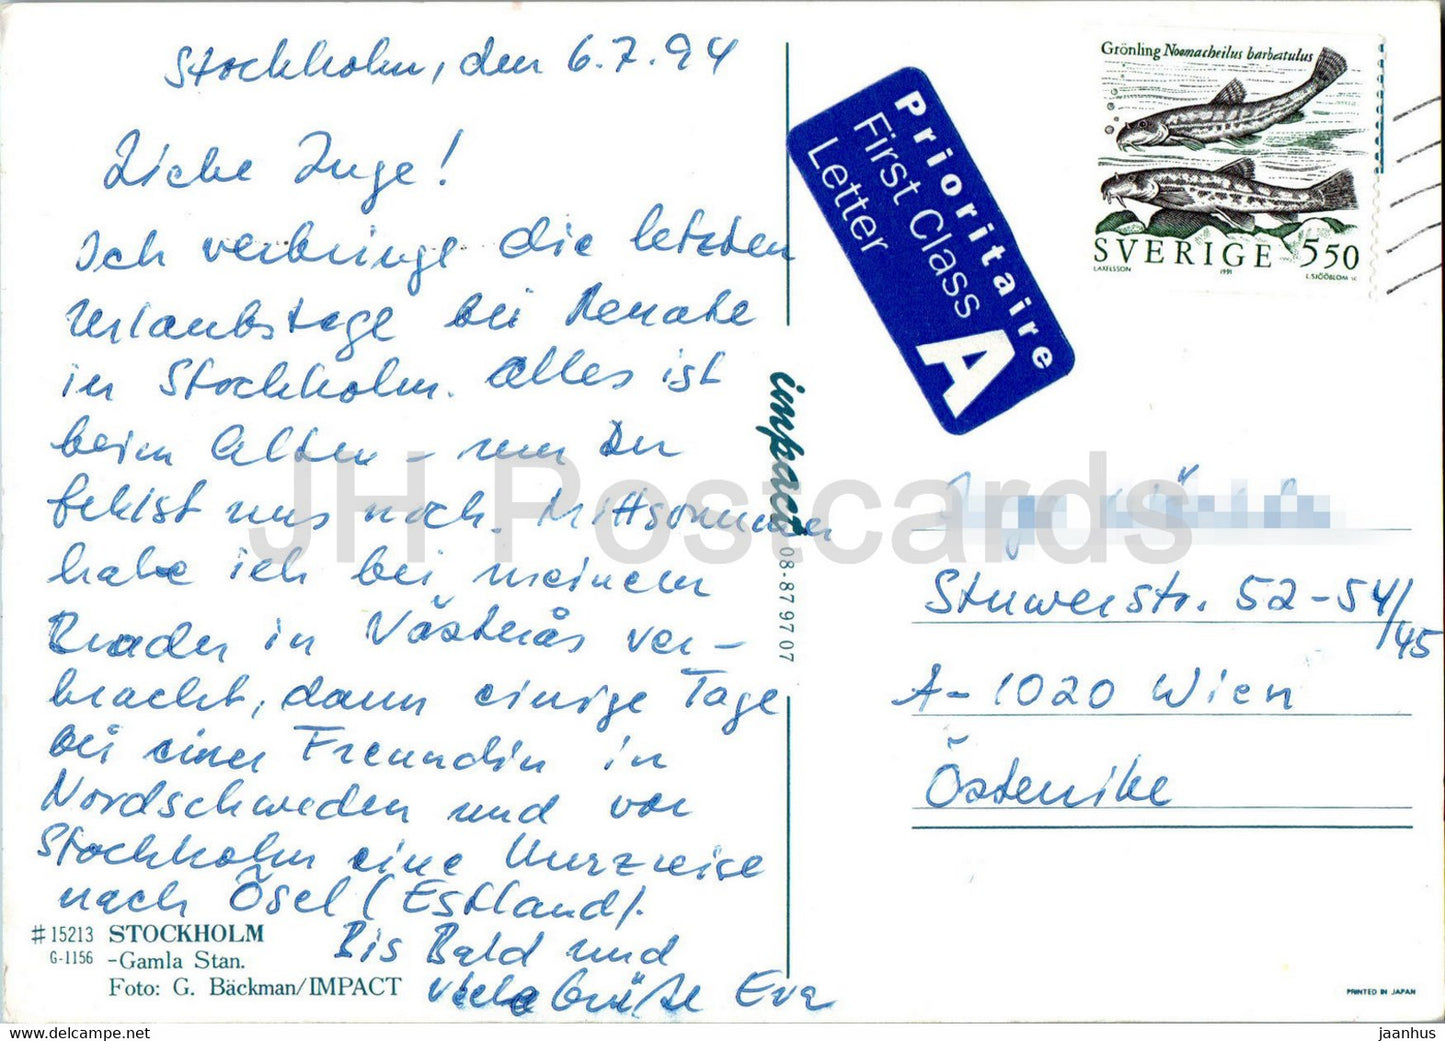 Stockholm, den 6.7.94
Liebe Inge!
Ich verbringe die letzten
Urlaubstage bei Renate
in Stockholm. Alles ist
beim Alten – nur Du
fehlst uns noch. Mittsommer
habe ich bei meinem
Bruder in Västerås ver-
bracht, dann einige Tage
bei einer Freundin in
Nordschweden und von
Stockholm eine Kurzreise
nach Ösel (Estland).
Bis Bald und
viele Grüße Eva
# 15213 STOCKHOLM
G-1156 -Gamla Stan.
Foto: G. Bäckman/IMPACT
impact
08-87 97 07
Prioritaire
First Class
Letter
A
Grönling Noemacheilus barbatulus
SVERIGE 5 50
L.AXELSSON 1991 L.SJÖÖBLOM SC
Stuwerstr. 52-54/
/45
A-1020 Wien
Österrike
PRINTED IN JAPAN
JH Postcards
www.delcampe.net
jaanhus